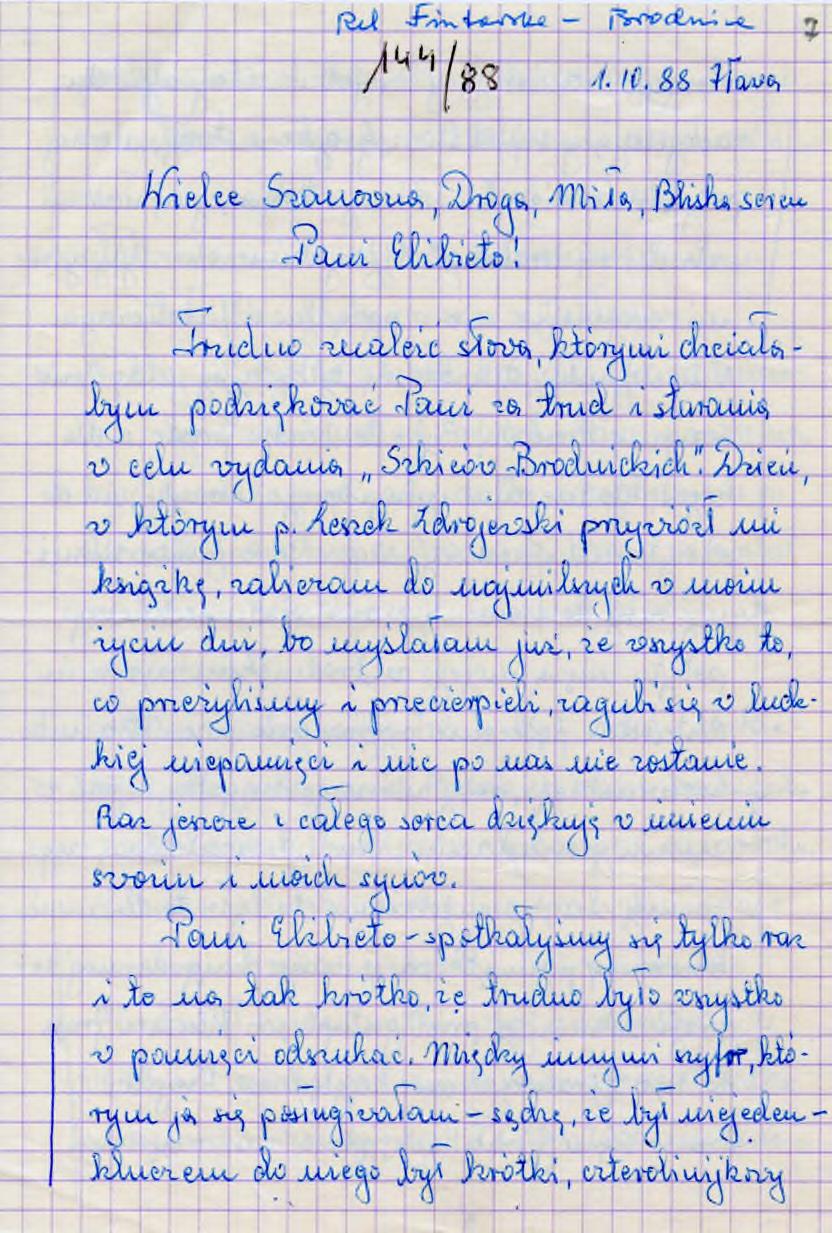 Rel Fintarska - Brodnica 7
144/88 1.10.88 Iława
Wielce Szanowna, Droga, Miła, Bliska sercu
Pani Elżbieto!
Trudno znaleźć słowa, którymi chciała-
bym podziękować Pani za trud i starania
w celu wydania „Szkiców Brodnickich". Dzień,
w którym p. Leszek Zdrojewski przywiózł mi
książkę, zalicram do najmilszych w moim
życiu dni, bo myślałam już, że wszystko to,
co przeżyliśmy i przecierpieli, zagubi się w ludz-
kiej niepamięci i nic po nas nie zostanie.
Raz jeszcze z całego serca dziękuję w imieniu
swoim i moich synów.
Pani Elżbieto - spotkałyśmy się tylko raz
i to na tak krótko, że trudno było wszystko
w pamięci odszukać. Między innymi szyfr, któ-
rym ja się posługiwałam - sądzę, że był niejeden -
kluczem do niego był krótki, czterolinijkowy